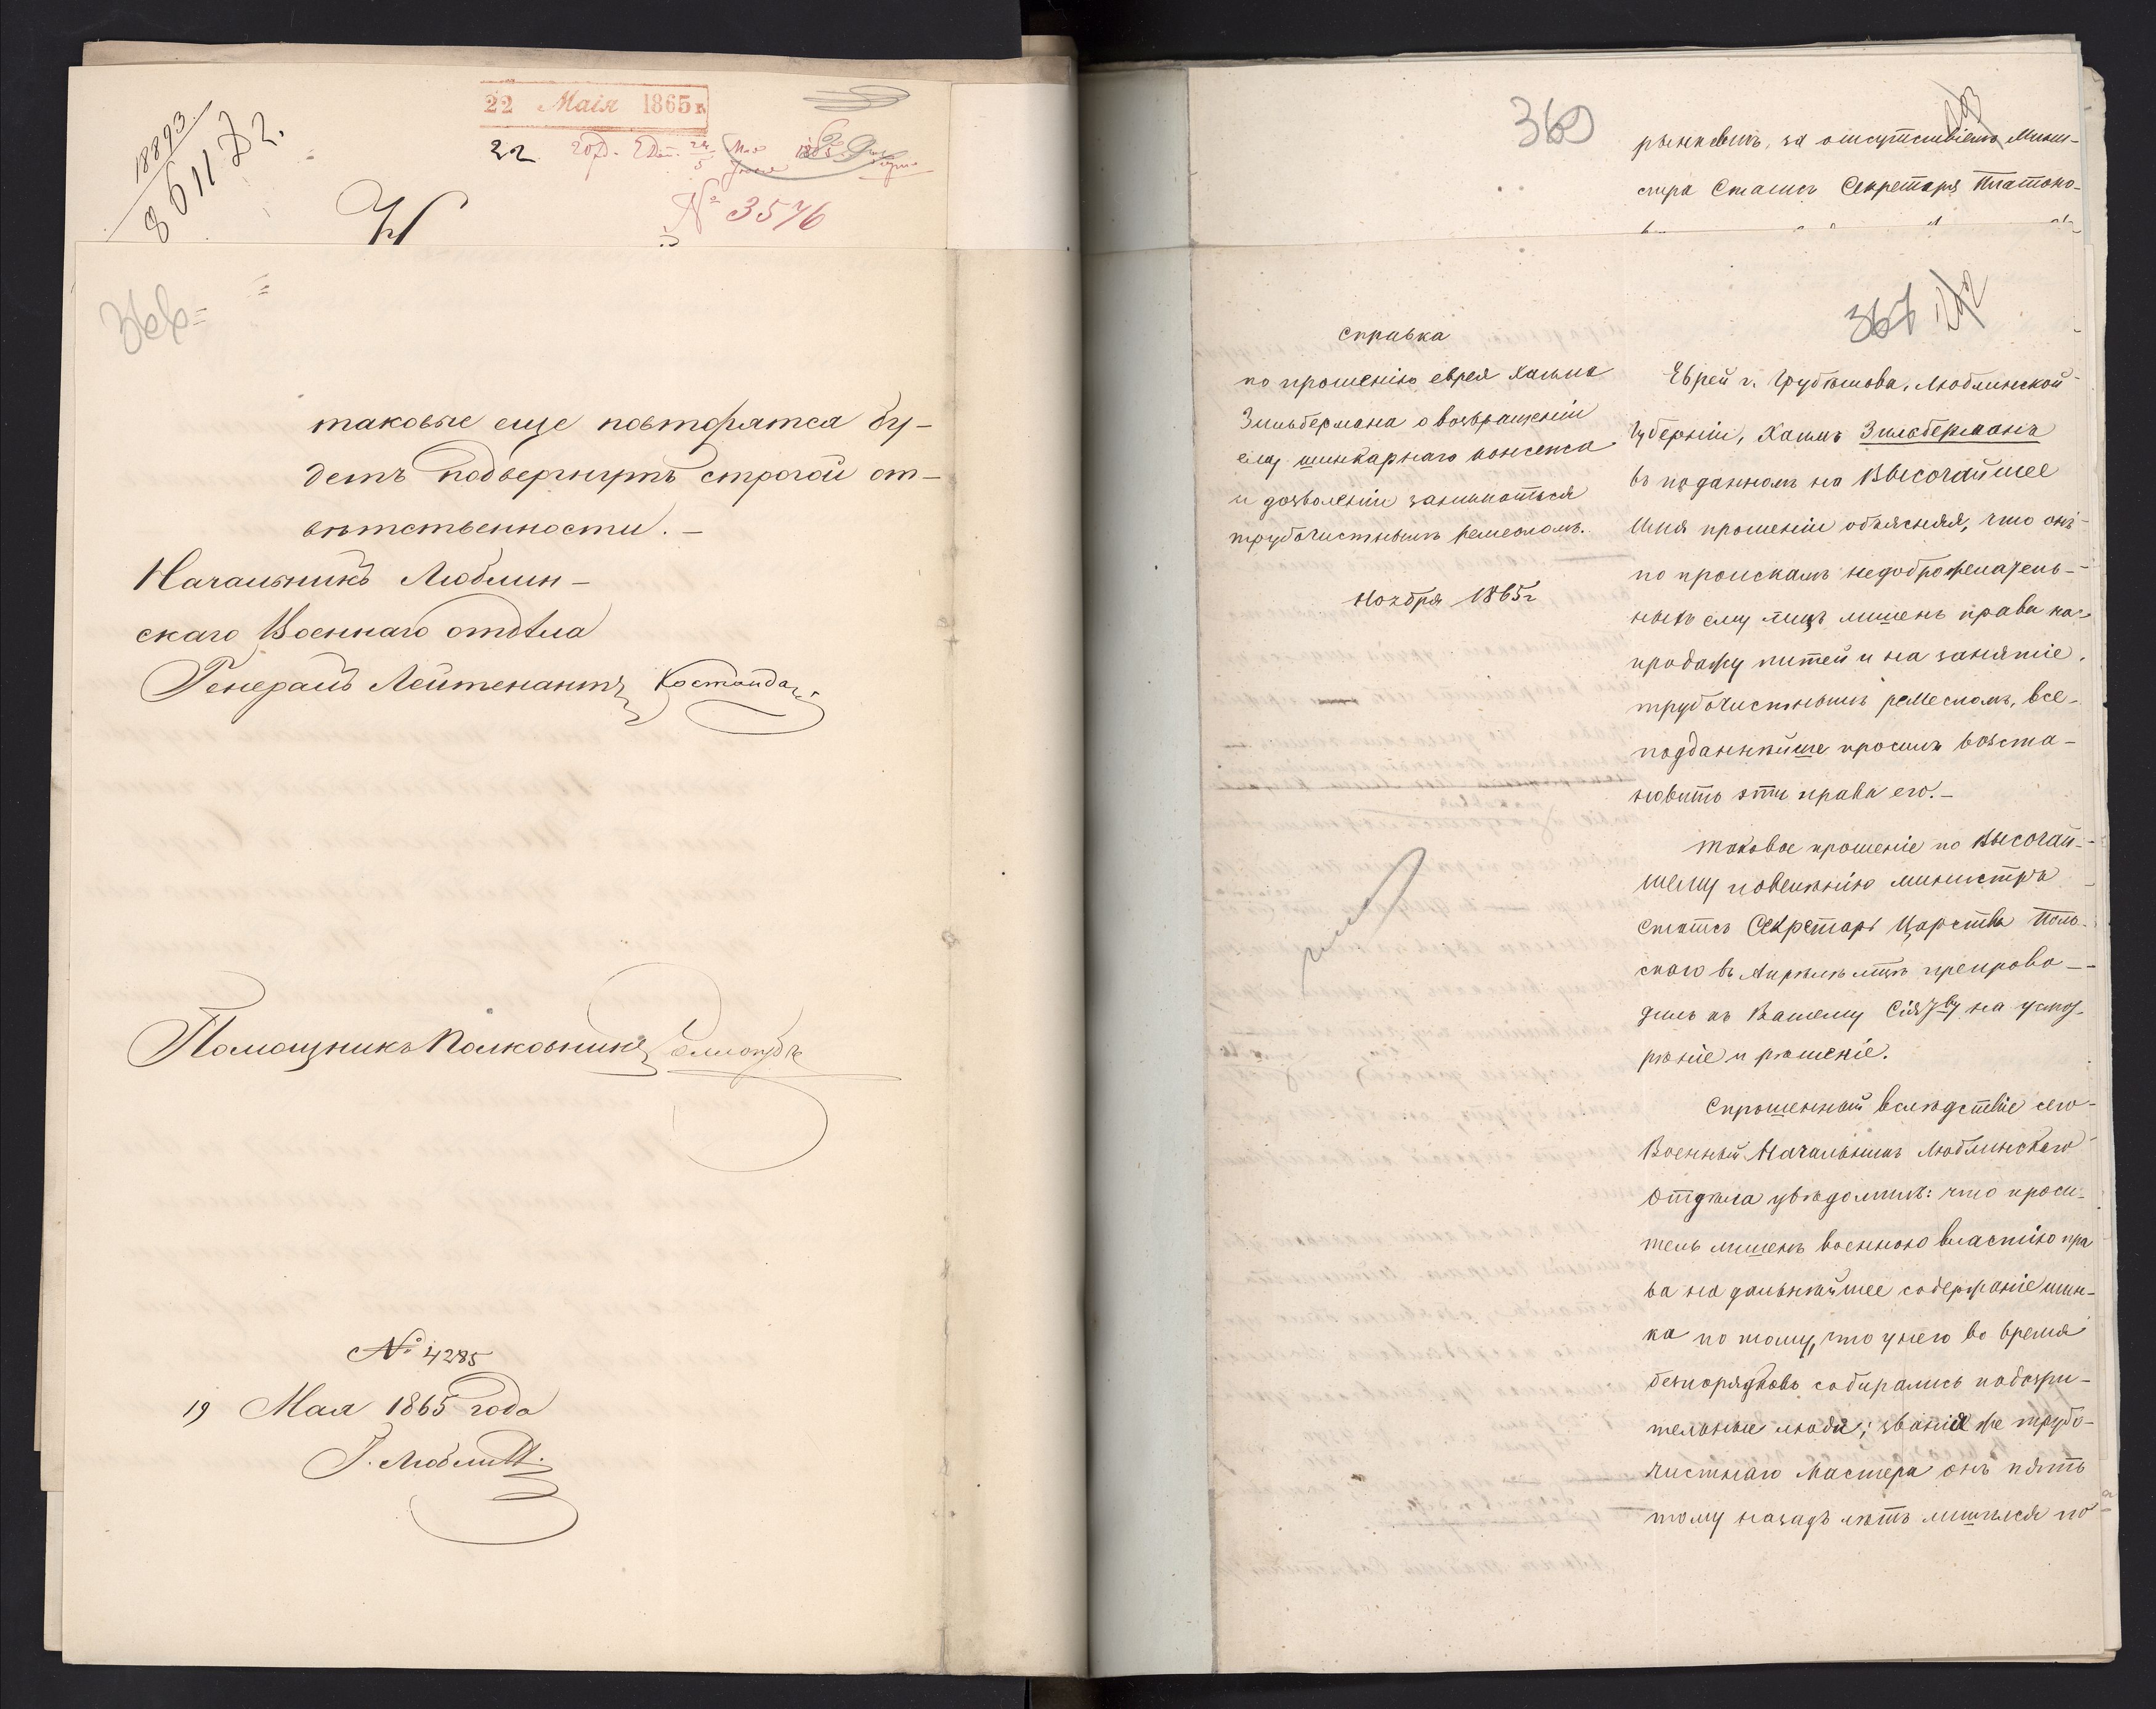 18893
8611
22 Маія 1865 г.
22
№ 3576
366
таковые еще повторятся бу-
детъ подвергнутъ строгой от-
вѣтственности. –
Начальникъ Люблин-
скаго Военнаго отдѣла
Генералъ Лейтенантъ Костанда
Помощникъ Полковникъ
№ 4285
19 Мая 1865 года
Г. Люблинъ.
369
193
рынкевичъ, за отсутствіемъ Мини-
стра Статсъ Секретаря Платоно-
367 192
Справка
по прошенію еврея Хаима
Зильбермана о возвращеніи
ему шинкарнаго консенса
и дозволеніи заниматься
трубочистнымъ ремесломъ.
Ноября 1865 г
Еврей г. Грубешова, Люблинской
Губерніи, Хаимъ Зильберманъ
въ поданномъ на Высочайшее
Имя прошеніи объясняя, что онъ
по проискамъ недоброжелатель-
ныхъ ему лицъ лишенъ права на
продажу питей и на занятіе
трубочистнымъ ремесломъ, все-
подданнѣйше проситъ возста-
новить эти права его. –
Таковое прошеніе по Высочай-
шему повелѣнію Министръ
Статсъ Секретарь Царства Поль-
скаго въ Апрѣлѣ мѣс. препрово-
дилъ къ Вашему Сіят-ву на усмо-
трѣніе и рѣшеніе.
Спрошенный вслѣдствіе сего
Военный Начальникъ Люблинскаго
Отдѣла увѣдомилъ: что проси-
тель лишенъ военною властію пра
ва на дальнѣйшее содержаніе шин-
ка по тому, что у него во время
безпорядковъ собирались подозри-
тельные люди; званія же трубо-
чистнаго мастера онъ пять
тому назадъ лѣтъ лишился по